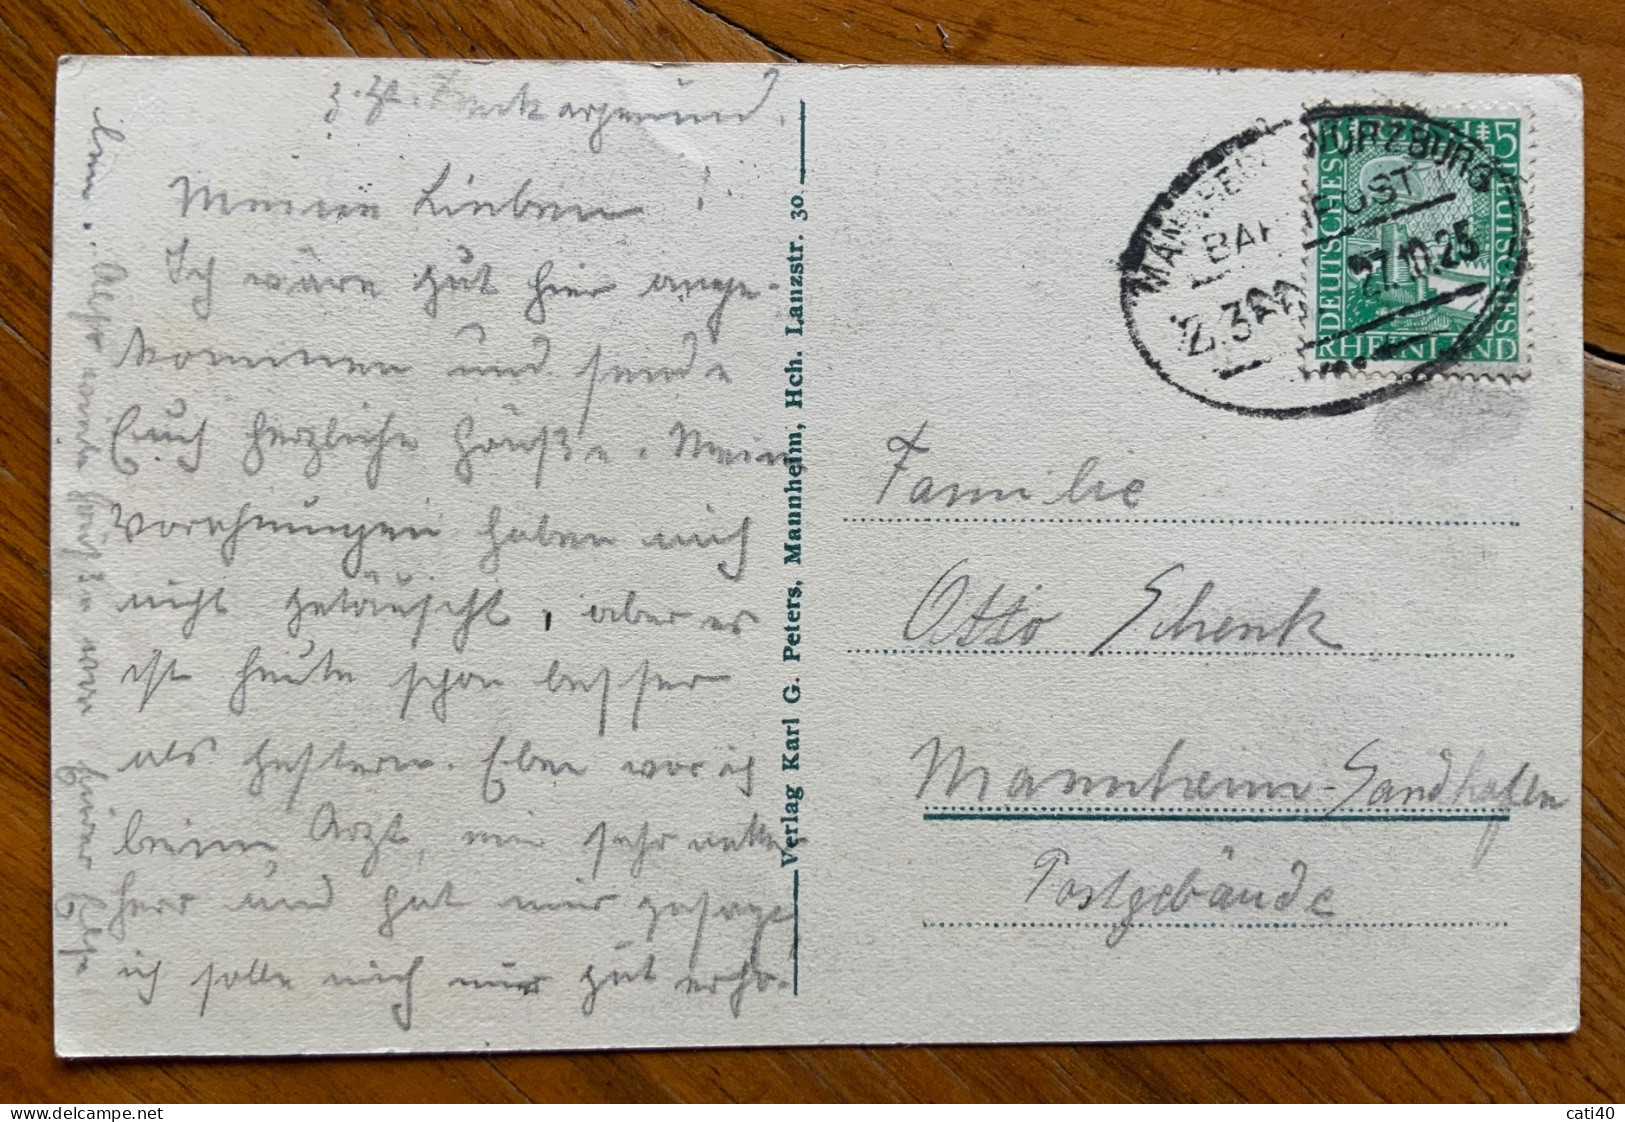 z. Zt. Neckargemünd.
Meine Lieben!
Ich wäre gut hier ange-
kommen und sende
Euch herzliche Grüße. Meine
Vorahnungen haben mich
nicht getäuscht, aber es
ist heute schon besser
als gestern. Eben war ich
beim Arzt, ein sehr netter
Herr und hat mir gesagt
ich solle mich nur gut erho-
len. Also viele Grüße von
Verlag Karl G. Peters, Mannheim, Hch. Lanzstr. 30
MANNHEIM WÜRZBURG
BAHNPOST
Z.3 27.10.25
5 DEUTSCHES REICH 5
RHEINLAND
Familie
Otto Schenk
Mannheim-Sandhofen
Postgebäude
cati40